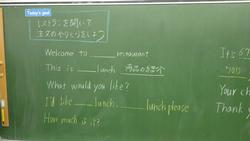 Today's goal
レストランを開いて
注文のやりとりをしよう
Welcome to ____ restaurant
This is ____ lunch 商品の紹介
What would you like?
I'd like ____ lunch, ____ lunch please
How much is it?
It's
Your ch
Thank y